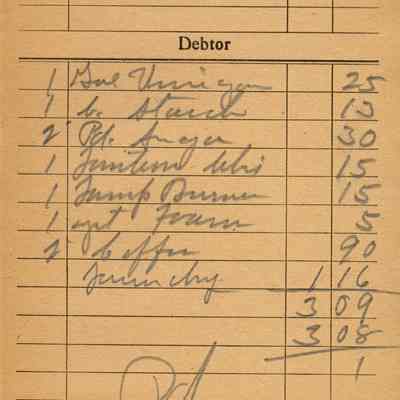 Debtor
1 Gal Vinegar 25
1 b. Starch 13
2 Pd. Sugar 30
1 Lantern 15
1 Lamp Burner 15
1 5
2 Coffee 90
Laundry 1 16
3 09
3 08
1
Pd